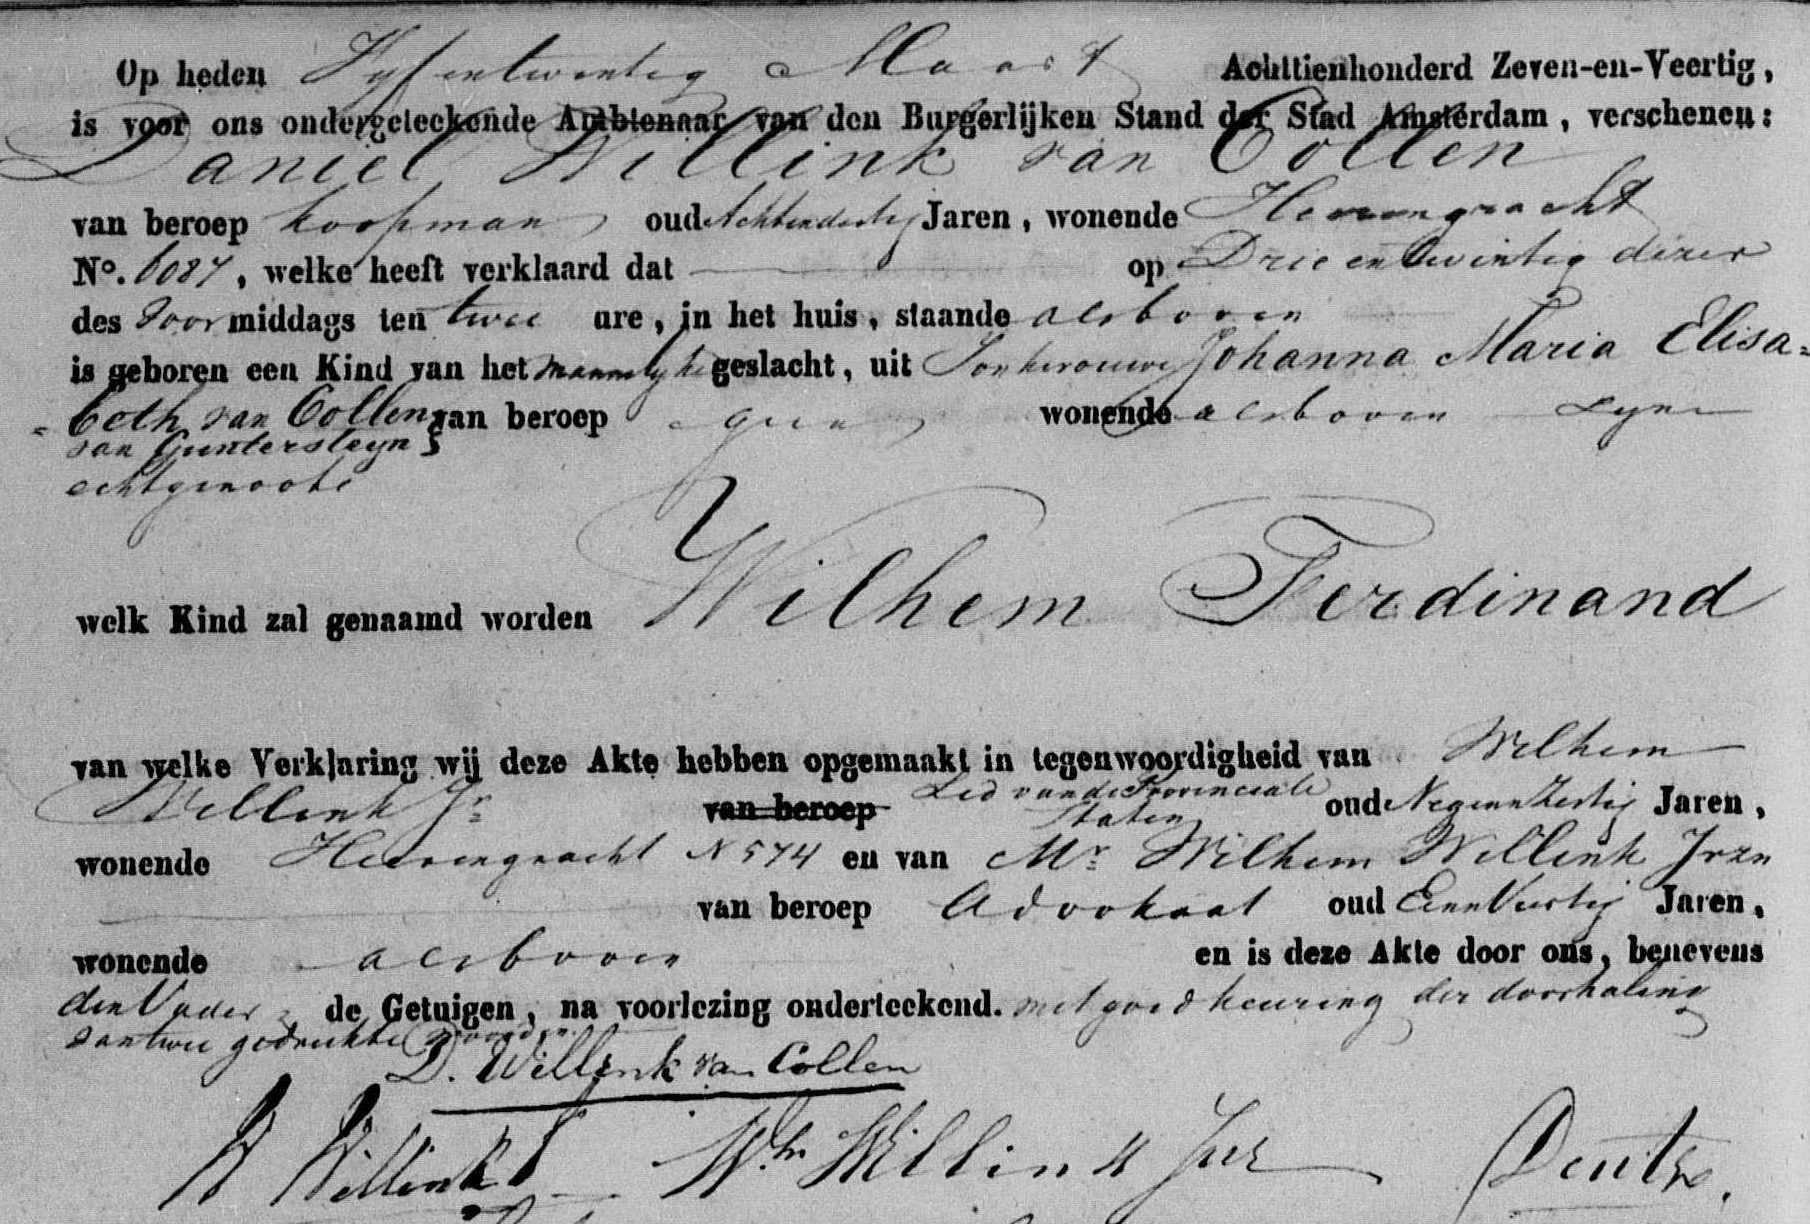 Op heden Vyfentwintig Maart Achttienhonderd Zeven-en-Veertig,
is voor ons ondergeteekende Ambtenaar van den Burgerlijken Stand der Stad Amsterdam, verschenen:
Daniel Willink van Collen
van beroep koopman oud Achtendertig Jaren, wonende Heerengracht
No. 6087, welke heeft verklaard dat op Drieentwintig dezer
des Voormiddags ten twee ure, in het huis, staande alsboven
is geboren een Kind van het mannelyke geslacht, uit Jonkvrouwe Johanna Maria Elisa=
=beth van Collen van beroep geen wonende alsboven zyne
van Guntersteyn
echtgenoote
welk Kind zal genaamd worden Wilhem Ferdinand
van welke Verklaring wij deze Akte hebben opgemaakt in tegenwoordigheid van Wilhem
Willink Jr van beroep Lid van de Provinciale Staten oud Negenenzestig Jaren,
wonende Heerengracht N 574 en van Mr Wilhem Willink Jrzn
van beroep Advokaat oud EenenVeertig Jaren,
wonende alsboven en is deze Akte door ons, benevens
den Vader de Getuigen, na voorlezing onderteekend. met goedkeuring der doorhaling
van twee gedrukte woorden
D. Willink van Collen
W Willink Jr Wm Willink Jrz